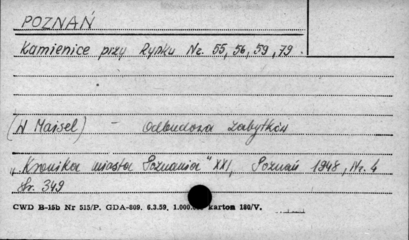 POZNAŃ
Kamienice przy Rynku Nr. 55, 56, 59, 79.
(W Maisel) - Odbudowa zabytków
„Kronika miasta Poznania" XXI, Poznań 1948, Nr. 4
Str. 349
CWD B-15b Nr 515/P. GDA-809. 6.3.59. 1.000.000 karton 180/V.